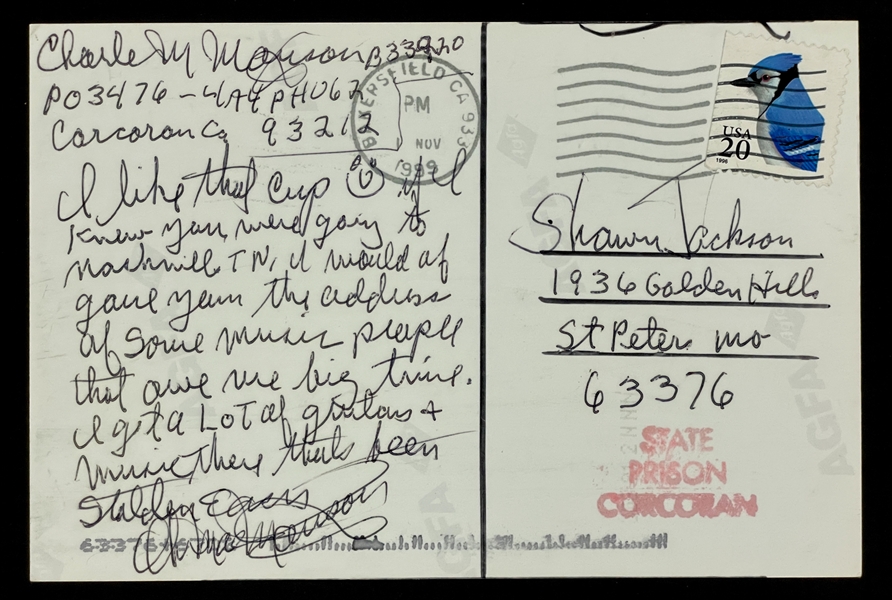 Charle M Manson B33920
PO3476-4A4PHU62
Corcoran Ca 93212
I like that cup if I
Knew you were going to
Nashvill TN, I would of
gave you the address
of some music people
that owe me big time.
I got a LOT of guitars +
music there thats been
Stolden
Manson
BAKERSFIELD CA 933
PM
NOV
1999
USA
20
1996
Shawn Jackson
1936 Golden Hills
St Peter mo
63376
STATE
PRISON
CORCORAN
AGFA